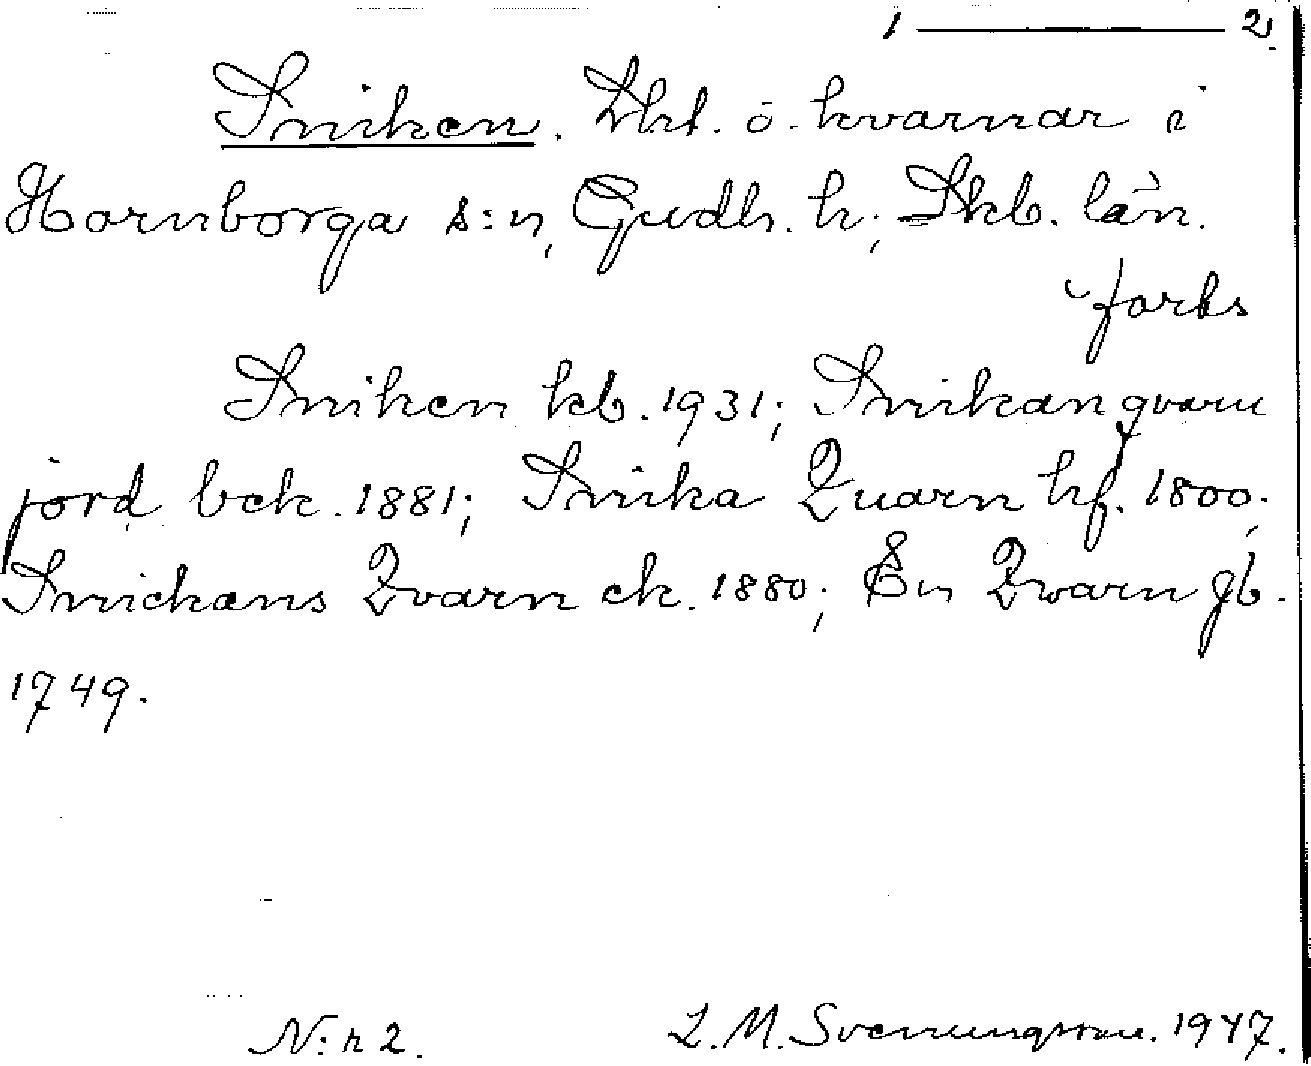 1 ——— 2.
Sniken. Lht. o. kvarnar i
Hornborga s:n, Gudh. h; Skb. län.
forts
Sniken kb. 1931; Snikan qvarn
jord bek. 1881; Snika Quarn hf. 1800;
Snickans Qvarn ek. 1880; En Qwarn gb.
1749.
N:r 2. L. M. Svenungsson. 1947.